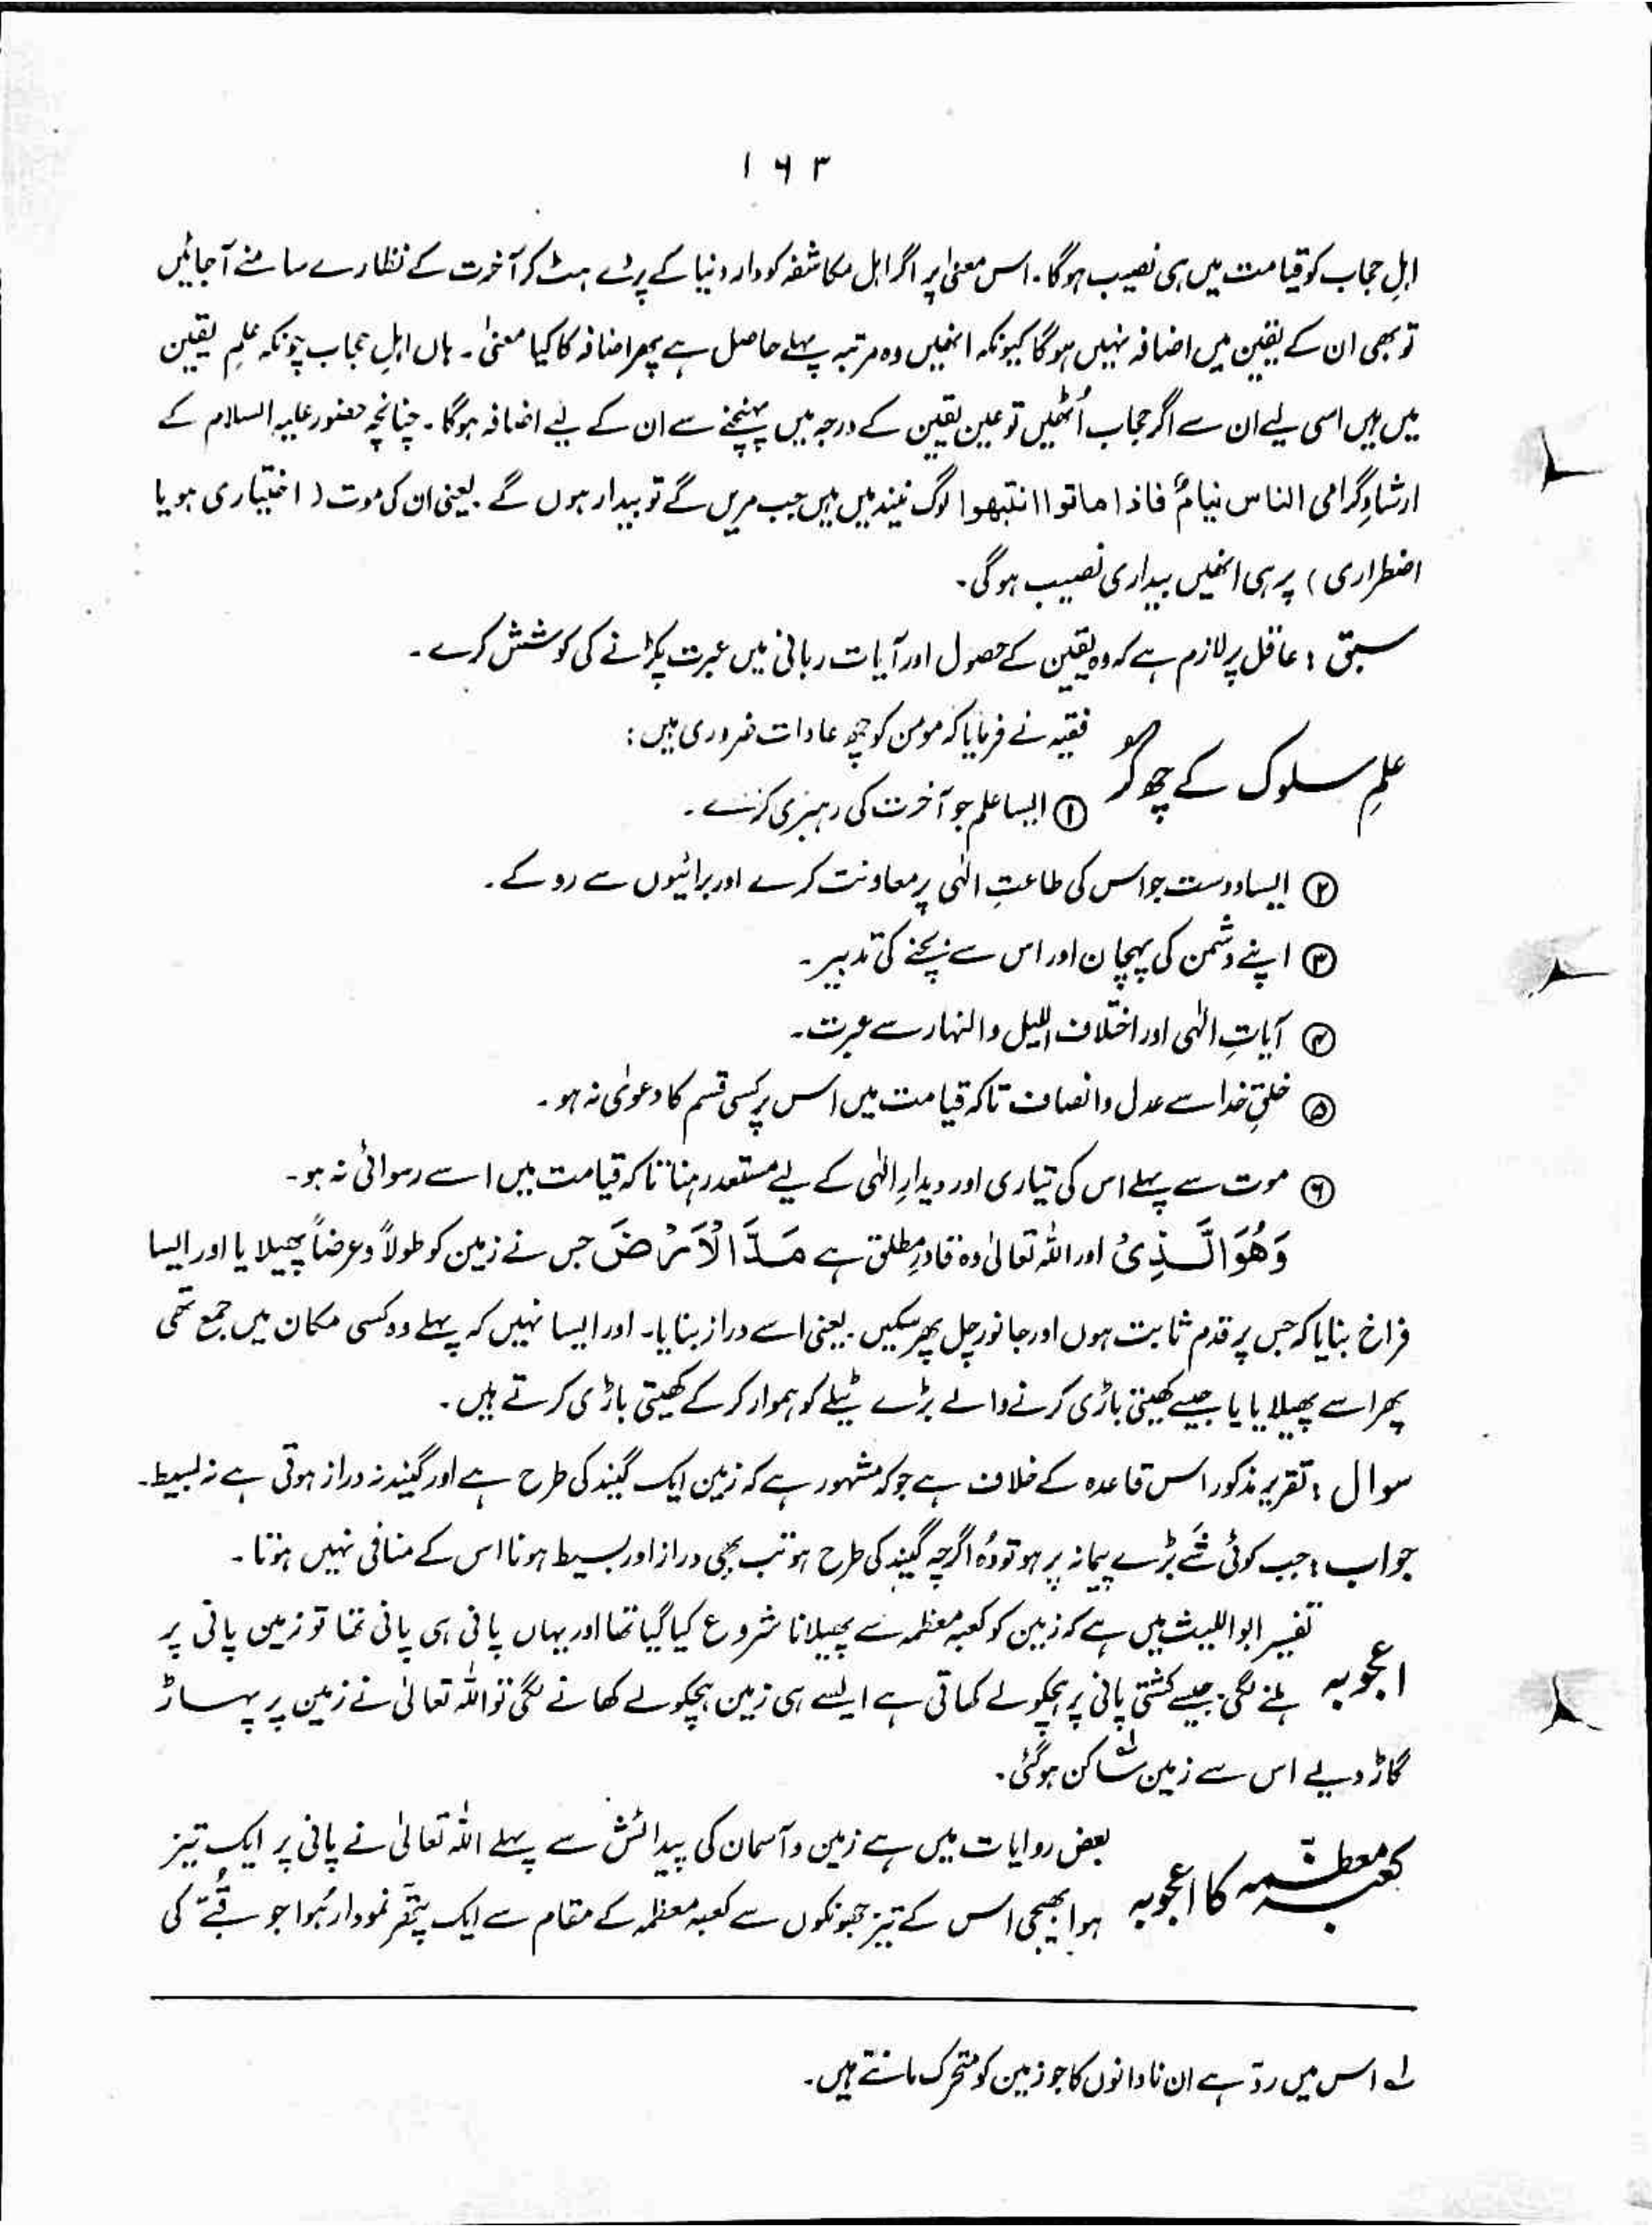 ۱۶۳
اہلِ حجاب کو قیامت میں ہی نصیب ہوگا۔ اس معنیٰ پر اگر اہل مکاشفہ کو دار دنیا کے پردے ہٹ کر آخرت کے نظارے سامنے آجائیں
تو بھی ان کے یقین میں اضافہ نہیں ہوگا کیونکہ انھیں وہ مرتبہ پہلے حاصل ہے پھر اضافہ کا کیا معنیٰ۔ ہاں اہلِ حجاب چونکہ علمِ یقین
میں ہیں اسی لیے ان سے اگر حجاب اُٹھیں تو عین یقین کے درجہ میں پہنچنے سے ان کے لیے اضافہ ہوگا۔ چنانچہ حضور علیہ السلام کے
ارشادِ گرامی الناس نیامٌ فاذا ماتوا انتبھوا لوگ نیند میں ہیں جب مریں گے تو بیدار ہوں گے یعنی ان کی موت ( اختیاری ہو یا
اضطراری ) پر ہی انھیں بیداری نصیب ہوگی۔
سبق : عاقل پر لازم ہے کہ وہ یقین کے حصول اور آیات ربانی میں عبرت پکڑنے کی کوشش کرے۔
علمِ سلوک کے چھ گُر
فقیہ نے فرمایا کہ مومن کو چھ عادات ضروری ہیں :
① ایسا علم جو آخرت کی رہبری کرے۔
② ایسا دوست جو اس کی طاعتِ الٰہی پر معاونت کرے اور برائیوں سے روکے۔
③ اپنے دشمن کی پہچان اور اس سے بچنے کی تدبیر۔
④ آیاتِ الٰہی اور اختلاف اللیل والنہار سے عبرت۔
⑤ خلقِ خدا سے عدل و انصاف تاکہ قیامت میں اس پر کسی قسم کا دعویٰ نہ ہو۔
⑥ موت سے پہلے اس کی تیاری اور دیدارِ الٰہی کے لیے مستعد رہنا تاکہ قیامت میں اسے رسوائی نہ ہو۔
وَهُوَ الَّذِیْ اور اللہ تعالیٰ وہ قادرِ مطلق ہے مَدَّ الْاَرْضَ جس نے زمین کو طولاً و عرضاً پھیلایا اور ایسا
فراخ بنایا کہ جس پر قدم ثابت ہوں اور جانور چل پھر سکیں۔ یعنی اسے دراز بنایا۔ اور ایسا نہیں کہ پہلے وہ کسی مکان میں جمع تھی
پھر اسے پھیلایا یا جیسے کھیتی باڑی کرنے والے بڑے ٹیلے کو ہموار کر کے کھیتی باڑی کرتے ہیں۔
سوال : تقریر مذکور اس قاعدہ کے خلاف ہے جو کہ مشہور ہے کہ زمین ایک گیند کی طرح ہے اور گیند نہ دراز ہوتی ہے نہ بسیط۔
جواب : جب کوئی شے بڑے پیمانہ پر ہو تو وُہ اگرچہ گیند کی طرح ہو تب بھی دراز اور بسیط ہونا اس کے منافی نہیں ہوتا۔
اعجوبہ
تفسیر ابواللیث میں ہے کہ زمین کو کعبہ معظمہ سے پھیلانا شروع کیا گیا تھا اور یہاں پانی ہی پانی تھا تو زمین پانی پر
ہلنے لگی۔ جیسے کشتی پانی پر ہچکولے کھاتی ہے ایسے ہی زمین ہچکولے کھانے لگی تو اللہ تعالیٰ نے زمین پر پہاڑ
گاڑ دیے اس سے زمین ساکن ہوگئی۔ لہ
کعبہ معظمہ کا اعجوبہ
بعض روایات میں ہے زمین و آسمان کی پیدائش سے پہلے اللہ تعالیٰ نے پانی پر ایک تیز
ہوا بھیجی اس کے تیز جھونکوں سے کعبہ معظمہ کے مقام سے ایک پتھر نمودار ہُوا جو قُبّے کی
لہ اس میں ردّ ہے ان نادانوں کا جو زمین کو متحرک مانتے ہیں۔